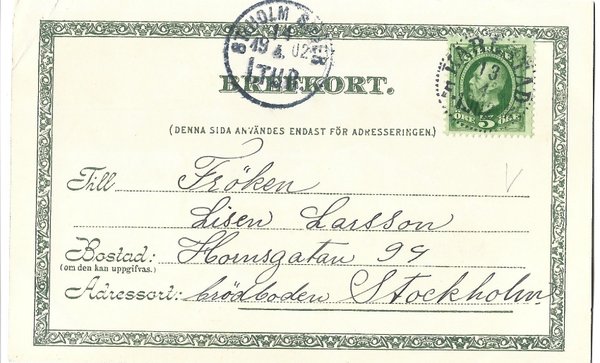 STHOLM
14
19 4 02
1 TUR
BREFKORT.
KARLSTAD
13
5 ÖRE 5
(DENNA SIDA ANVÄNDES ENDAST FÖR ADRESSERINGEN.)
Till Fröken
Lisen Larsson
Bostad: Hornsgatan 99
(om den kan uppgifvas.)
Adressort: brödboden Stockholm